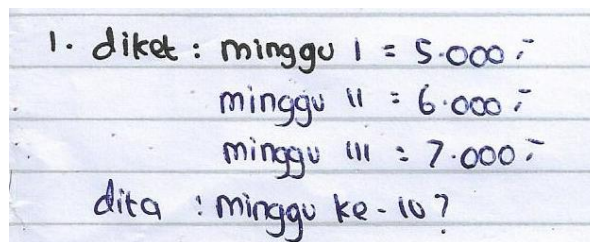 1. diket : minggu I = 5.000,-
minggu II = 6.000,-
minggu III = 7.000,-
dita : minggu ke-10?